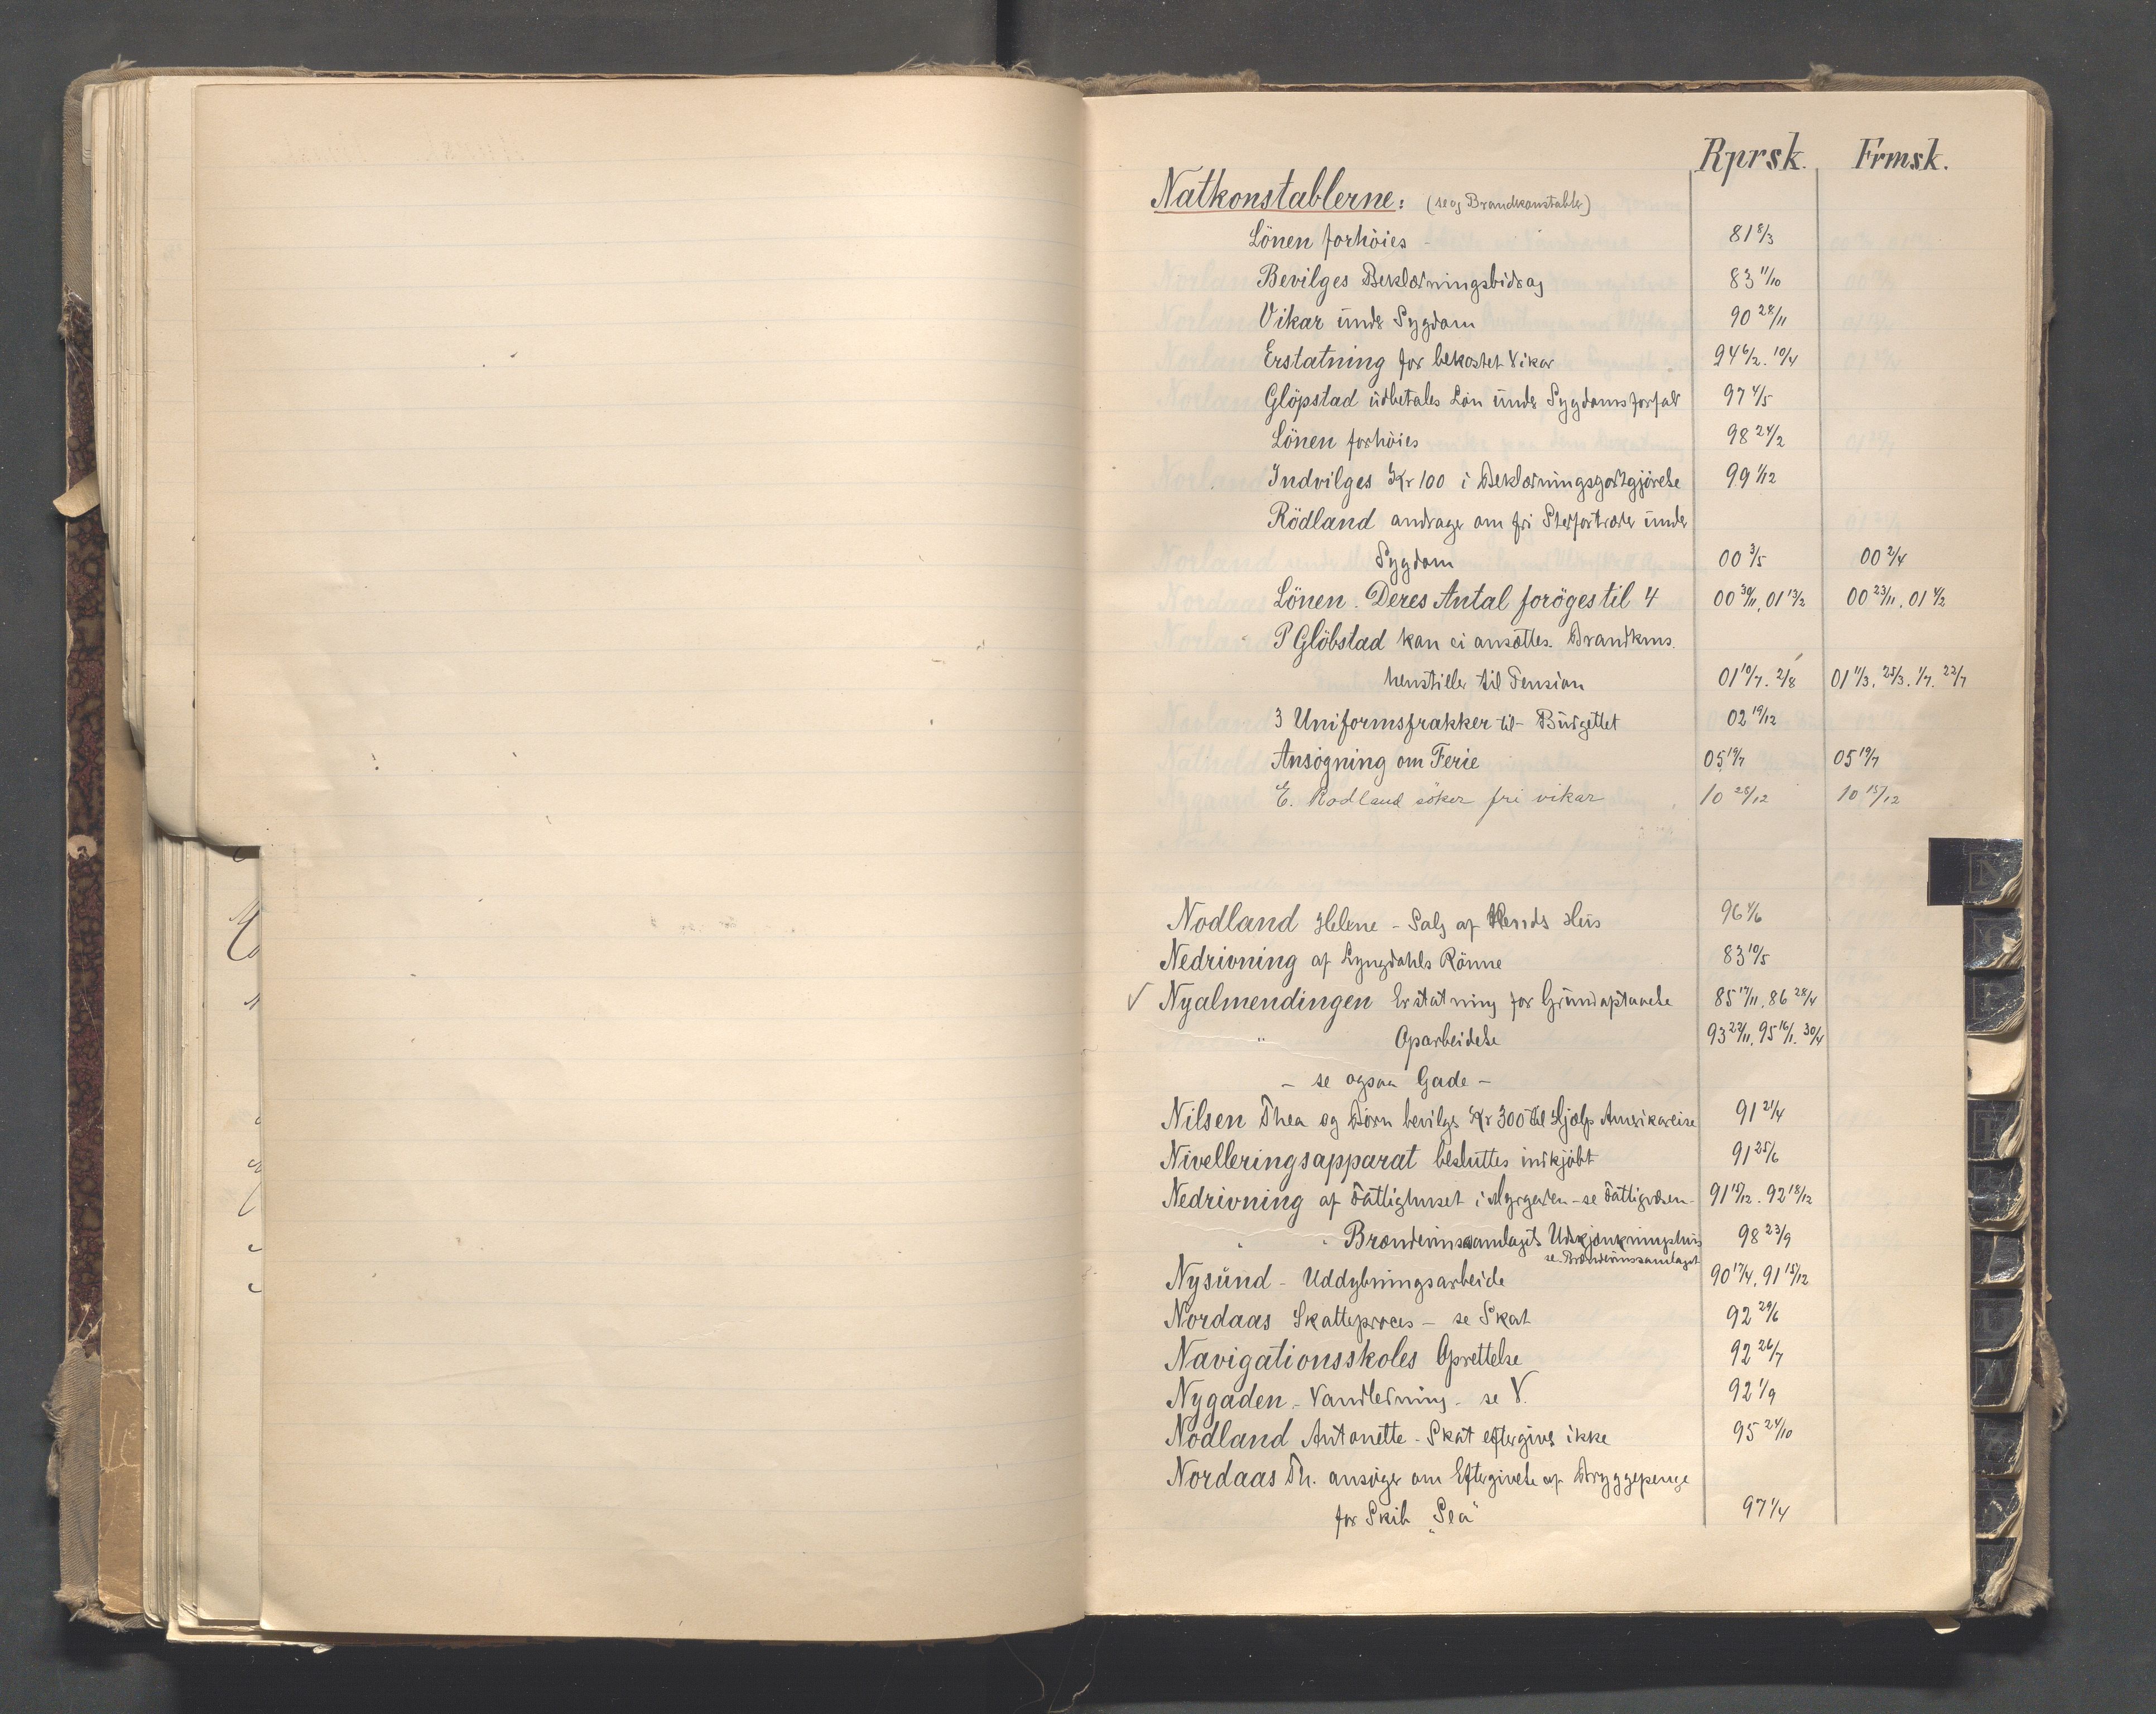 Rprsk. Frmsk.
Natkonstablerne: (se og Brandkonstabler)
Lönen forhöies 81 8/3
Bevilges Beklædningsbidrag 83 11/10
Vikar under Sygdom 90 28/11
Erstatning for bekostet Vikar 94 6/2. 10/4
Glöpstad udbetales Lön under Sygdomsforfald 97 4/5
Lönen forhöies 98 24/2
Indvilges Kr 100 i Beklædningsgodtgjörelse 99 1/12
Rödland andrager om fri Stedfortræder under
Sygdom 00 3/5 00 2/4
Lönen. Deres Antal foröges til 4 00 30/11, 01 13/2 00 23/11, 01 4/2
P Glöbstad kan ei ansættes. Brandkms.
henstiller til Pension 01 10/7. 2/8 01 11/3. 25/3. 1/7. 22/7
3 Uniformsfrakker til Budgettet 02 19/12
Ansögning om Ferie 05 19/7 05 19/7
E. Rodland söker fri vikar 10 28/12 10 15/12
Nodland Helene - Salg af Hus 96 4/6
Nedrivning af Lyngdahls Rönne 83 10/5
✓ Nyalmendingen Erstatning for Grundaptaaelse 85 17/11, 86 28/4
" Oparbeidelse 93 22/11, 95 16/1. 30/4
- se ogsaa Gade -
Nilsen Thea og Börn bevilges Kr 300 til Hjælp Amerikareise 91 21/4
Nivelleringsapparat besluttes indkjöbt 91 25/6
Nedrivning af Fattighuset i Myrgaden - se Fattigvæsen - 91 15/12. 92 18/12
" " Brændevinssamlagets Udskjænkningshus 98 23/9
se Brændevinssamlaget
Nysund - Uddybningsarbeide 90 17/4, 91 15/12
Nordaas Skatteproces - se Skat 92 29/6
Navigationsskoles Oprettelse 92 26/7
Nygaden - Vandledning - se V. 92 1/9
Nodland Antonette - Skat eftergives ikke 95 24/10
Nordaas Th. ansöger om Eftergivelse af Bryggepenge
for Skib „Sea" 97 1/4